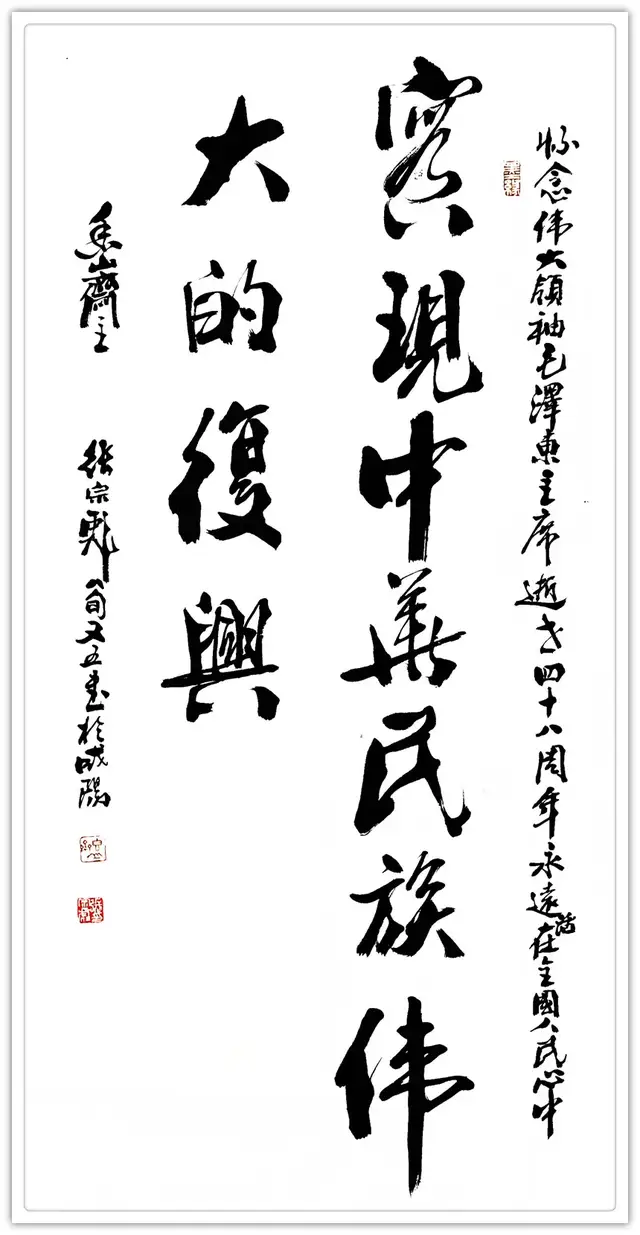 怀念伟大領袖毛澤東主席逝世四十八周年永遠活在全國人民心中
實現中華民族伟
大的復興
山齋主 張宗 八旬又五書於咸陽